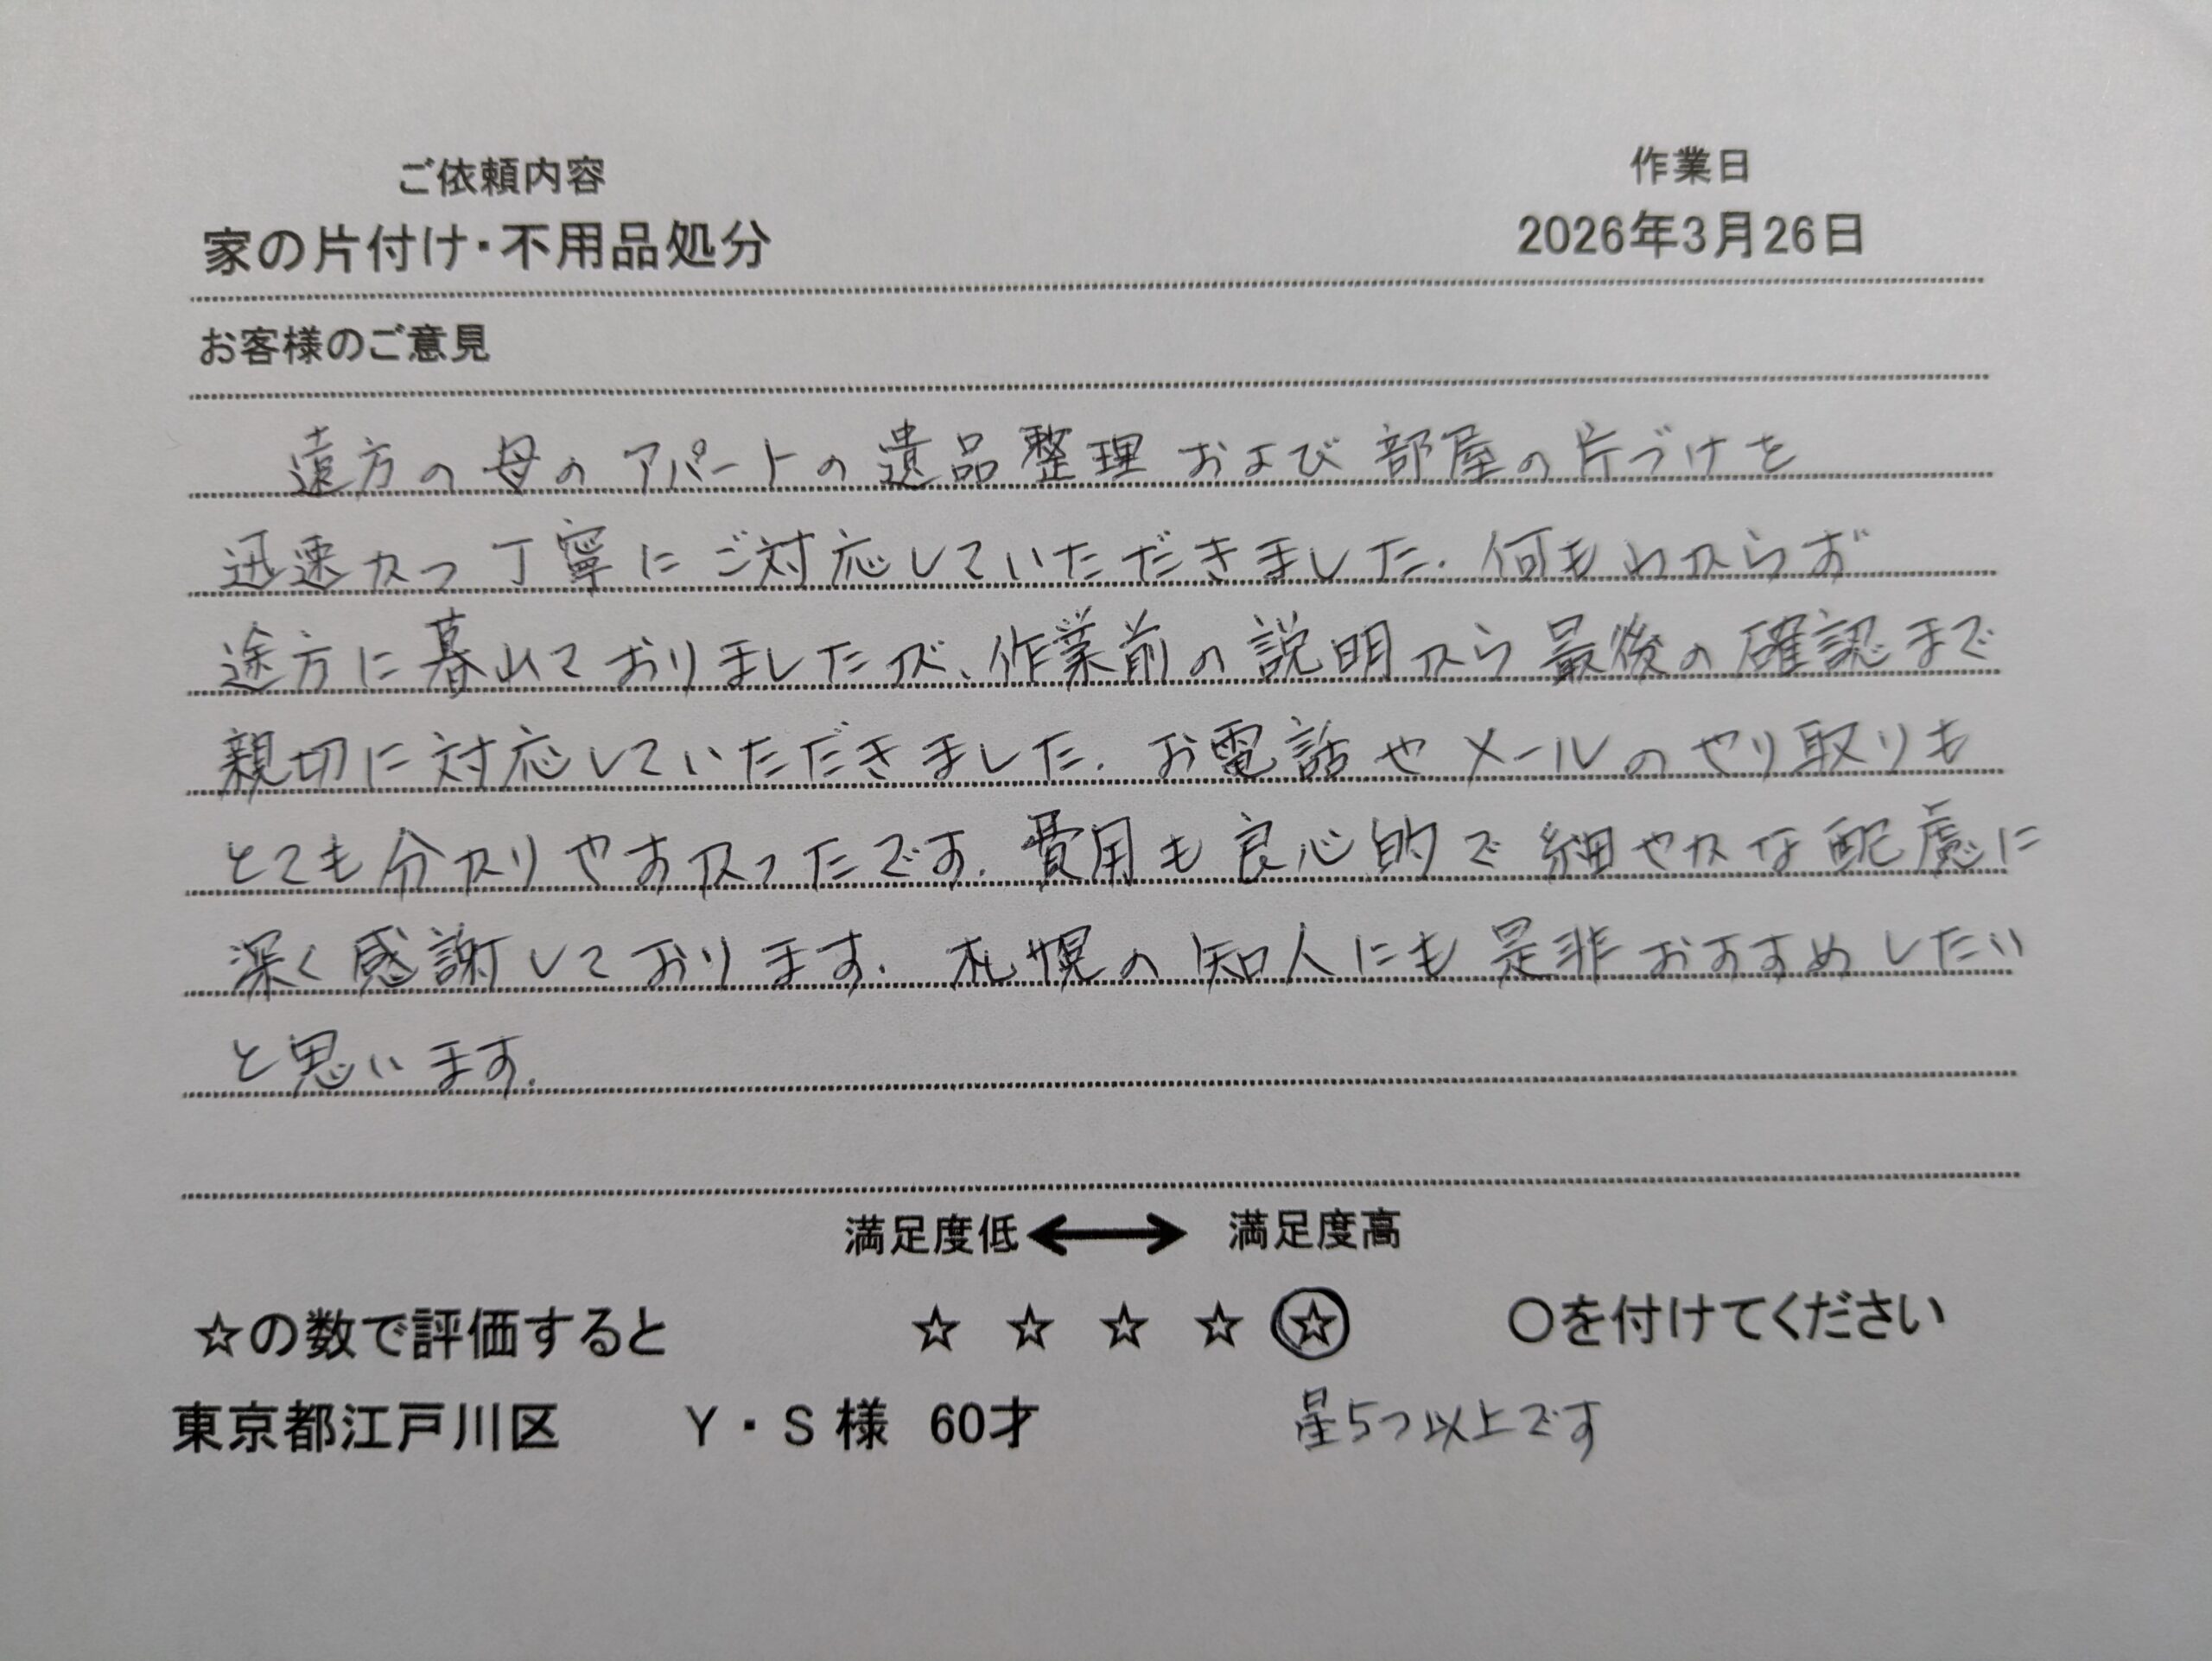 ご依頼内容 作業日
家の片付け・不用品処分 2026年3月26日
お客様のご意見
遠方の母のアパートの遺品整理および部屋の片づけを
迅速かつ丁寧にご対応していただきました。何もわからず
途方に暮れておりましたが、作業前の説明から最後の確認まで
親切に対応していただきました。お電話やメールのやり取りも
とても分かりやすかったです。費用も良心的で細やかな配慮に
深く感謝しております。札幌の知人にも是非おすすめしたい
と思います。
満足度低 ⟷ 満足度高
☆の数で評価すると ☆ ☆ ☆ ☆ ☆ ○を付けてください
東京都江戸川区 Y・S様 60才 星5つ以上です